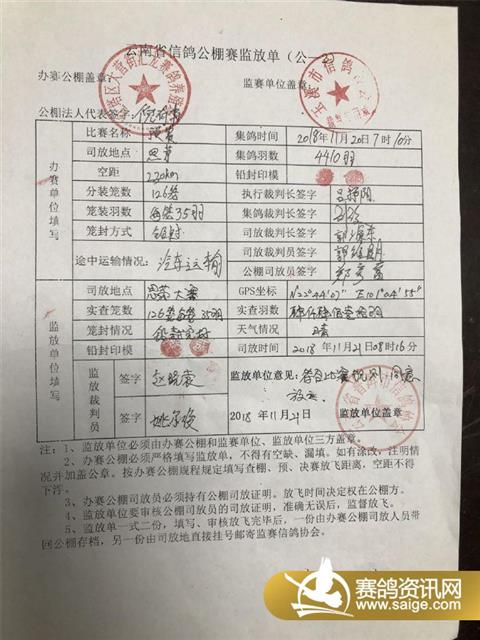 云南省信鸽公棚赛监放单（公一2）
办赛公棚盖章： 监赛单位盖章：
公棚法人代表签字：
办赛单位填写
比赛名称 预赛 集鸽时间 2018年11月20日7时10分
司放地点 思茅 集鸽羽数 4410羽
空距 220km 铅封印模
分装笼数 126笼 执行裁判长签字
笼装羽数 每笼35羽 集鸽裁判长签字
笼封方式 铅封 司放裁判长签字
途中运输情况： 汽车运输 司放裁判员签字
公棚司放员签字
监放单位填写
司放地点 思茅大寨 GPS坐标 N22°44′07″ E101°04′55″
实查笼数 126笼每笼35羽 实查羽数
笼封情况 铅封完好 天气情况 晴
铅封印模 司放时间 2018年11月21日08时16分
监放裁判员
签字 赵晓震 监放单位意见：符合比赛规则 同意
放飞
签字 2018年11月21 监放单位盖章
注：1、监放单位必须由办赛公棚和监赛单位、监放单位三方盖章。
2、办赛公棚必须严格填写监放单，不得有空缺、漏填。如有涂改，注明情
况并加盖公章。按办赛公棚规程规定填写查棚、预、决赛放飞距离，空距不得
下浮。
3、办赛公棚司放员必须持有公棚司放证明。放飞时间决定权在公棚方。
4、监放单位要审核公棚司放员的司放证明，准确无误后，监督放飞。
5、监放单一式二份，填写、审核放飞完毕后，一份由办赛公棚司放人员带
回公棚存档，另一份由司放地直接挂号邮寄监赛信鸽协会。
赛鸽资讯网
www.saige.com